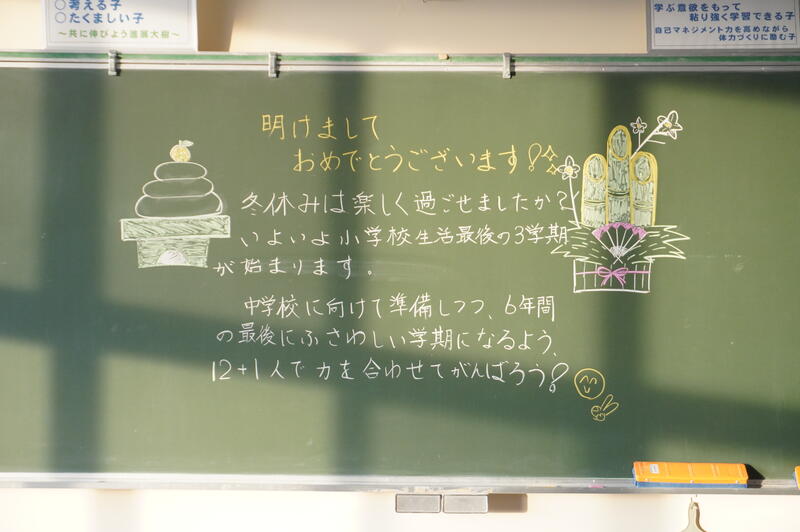 ○考える子
○たくましい子
～共に伸びよう進展大樹～
学ぶ意欲をもって
粘り強く学習できる子
自己マネジメント力を高めながら
体力づくりに励む子
明けまして
おめでとうございます!
冬休みは楽しく過ごせましたか?
いよいよ小学校生活最後の3学期
が始まります。
中学校に向けて準備しつつ、6年間
の最後にふさわしい学期になるよう、
12+1人で力を合わせてがんばろう!